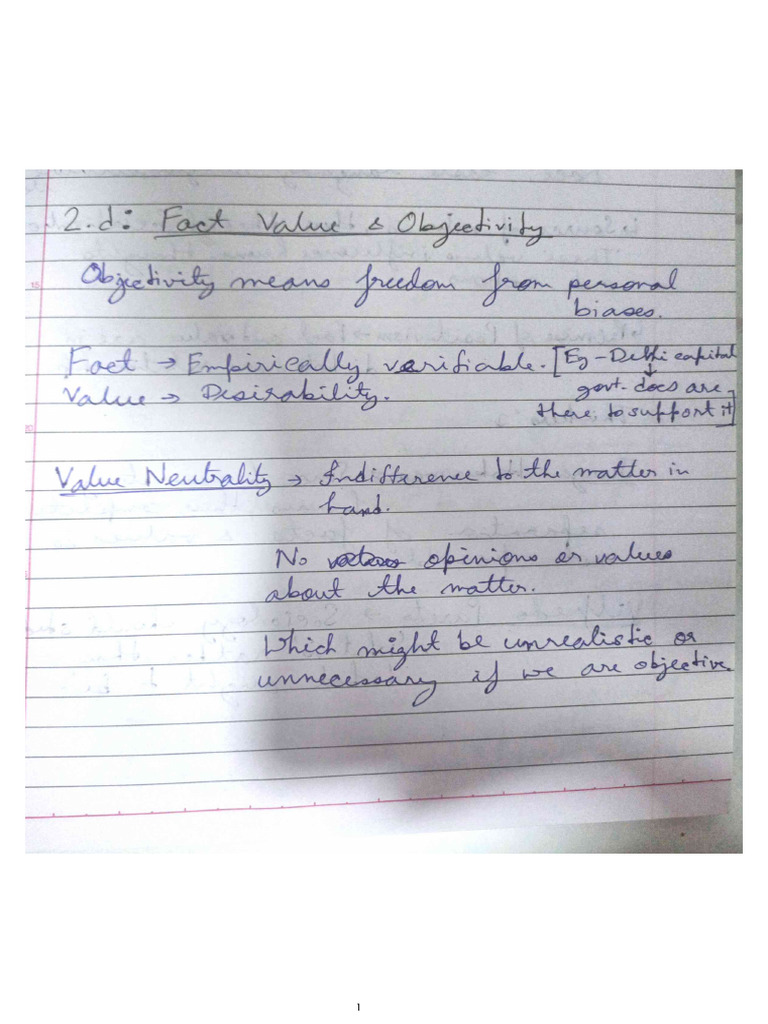 2.d: Fact Value & Objectivity
Objectivity means freedom from personal
biases.
Fact → Empirically verifiable. [Eg - Delhi capital
↓
govt. docs are
there to support it]
Value → Desirability.
Value Neutrality → Indifference to the matter in
hand.
No opinions or values
about the matter.
Which might be unrealistic or
unnecessary if we are objective.
1